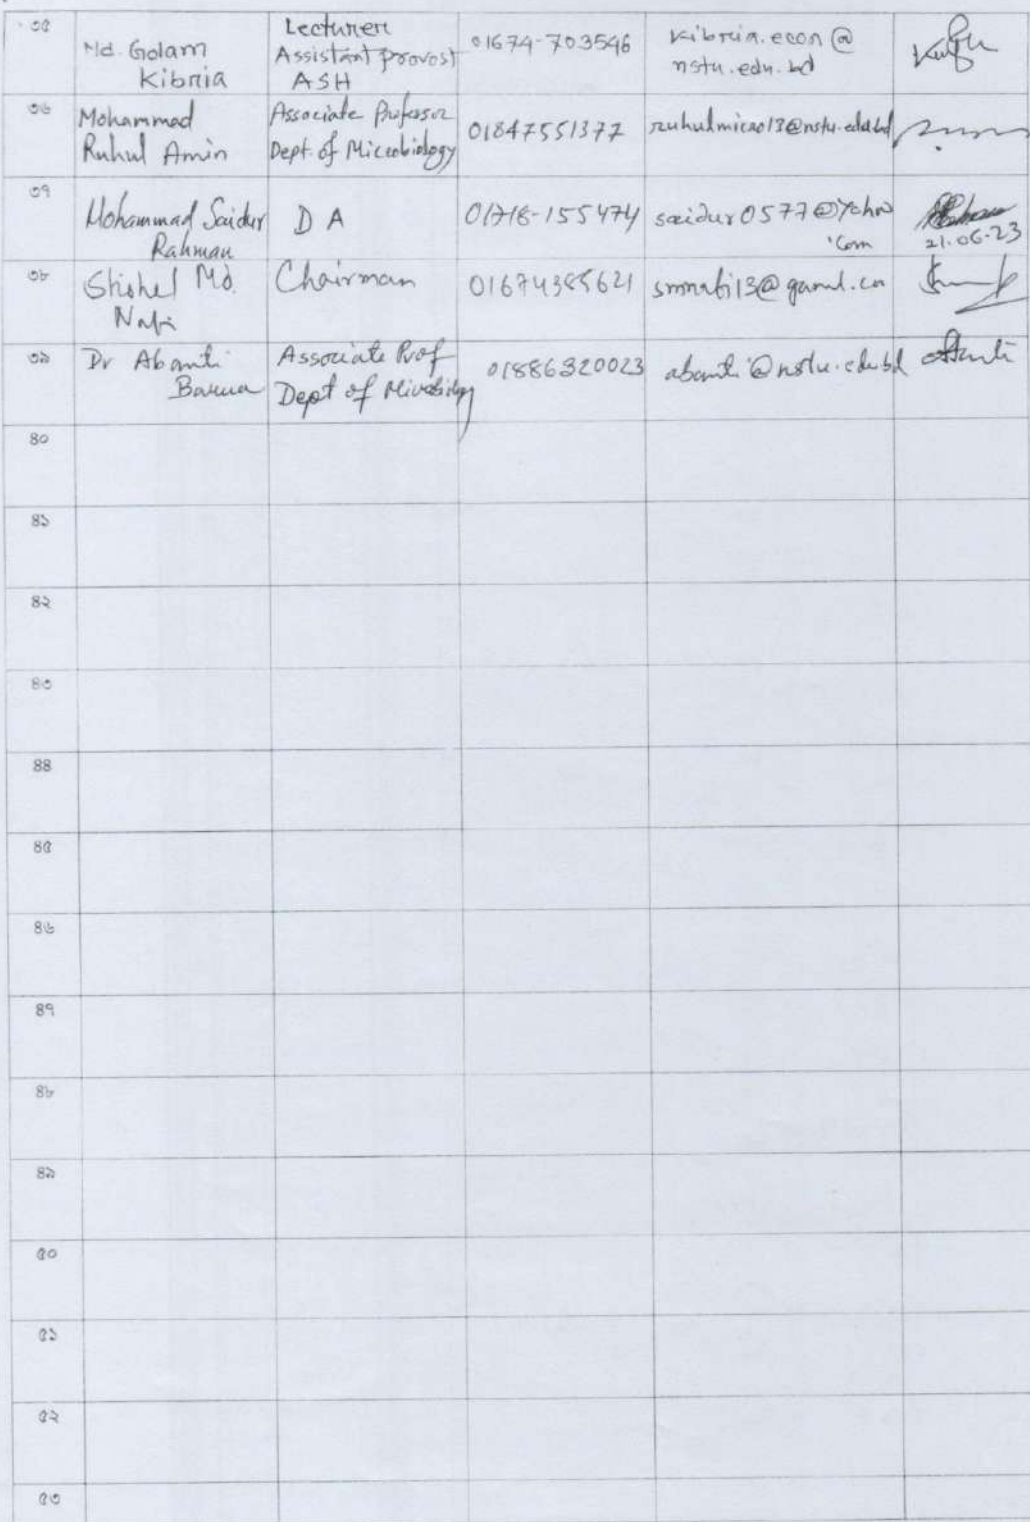 ৩৫
Md. Golam
Kibria
Lecturer
Assistant Provost
ASH
01674-703546
kibria.econ@
nstu.edu.bd
৩৬
Mohammad
Ruhul Amin
Associate Professor
Dept. of Microbiology
01847551377
ruhulmicro13@nstu.edu.bd
৩৭
Mohammad Saidur
Rahman
D A
01718-155474
saidur0577@yahoo
.com
21.06.23
৩৮
Shohel Md.
Nafi
Chairman
01674385621
smnafi13@gmail.com
৩৯
Dr Abanti
Barua
Associate Prof
Dept of Microbiology
01886320023
abanti@nstu.edu.bd
৪০
৪১
৪২
৪৩
৪৪
৪৫
৪৬
৪৭
৪৮
৪৯
৫০
৫১
৫২
৫৩